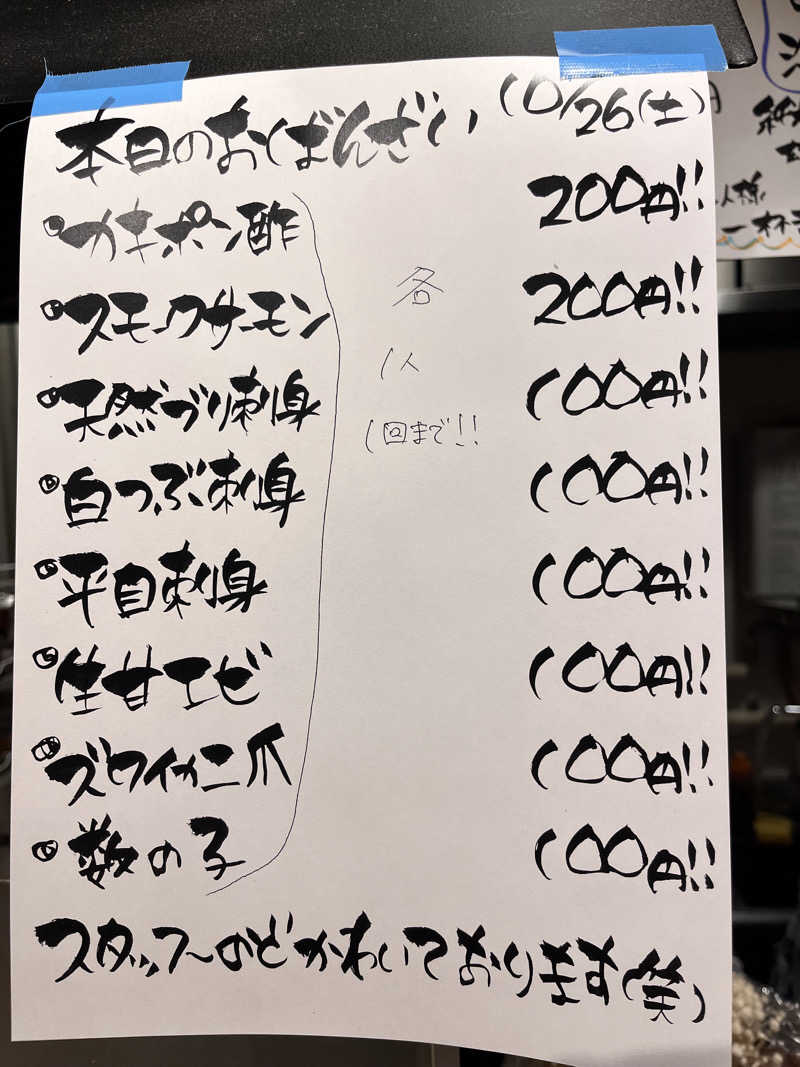 本日のおばんざい 10/26(土)
・カキポン酢 200円!!
・スモークサーモン 200円!!
・天然ブリ刺身 100円!!
・白つぶ刺身 100円!!
・平目刺身 100円!!
・生甘エビ 100円!!
・ズワイカニ爪 100円!!
・数の子 100円!!
各
1人
1回まで!!
スタッフ〜のどかわいております(笑)
人様
一杯